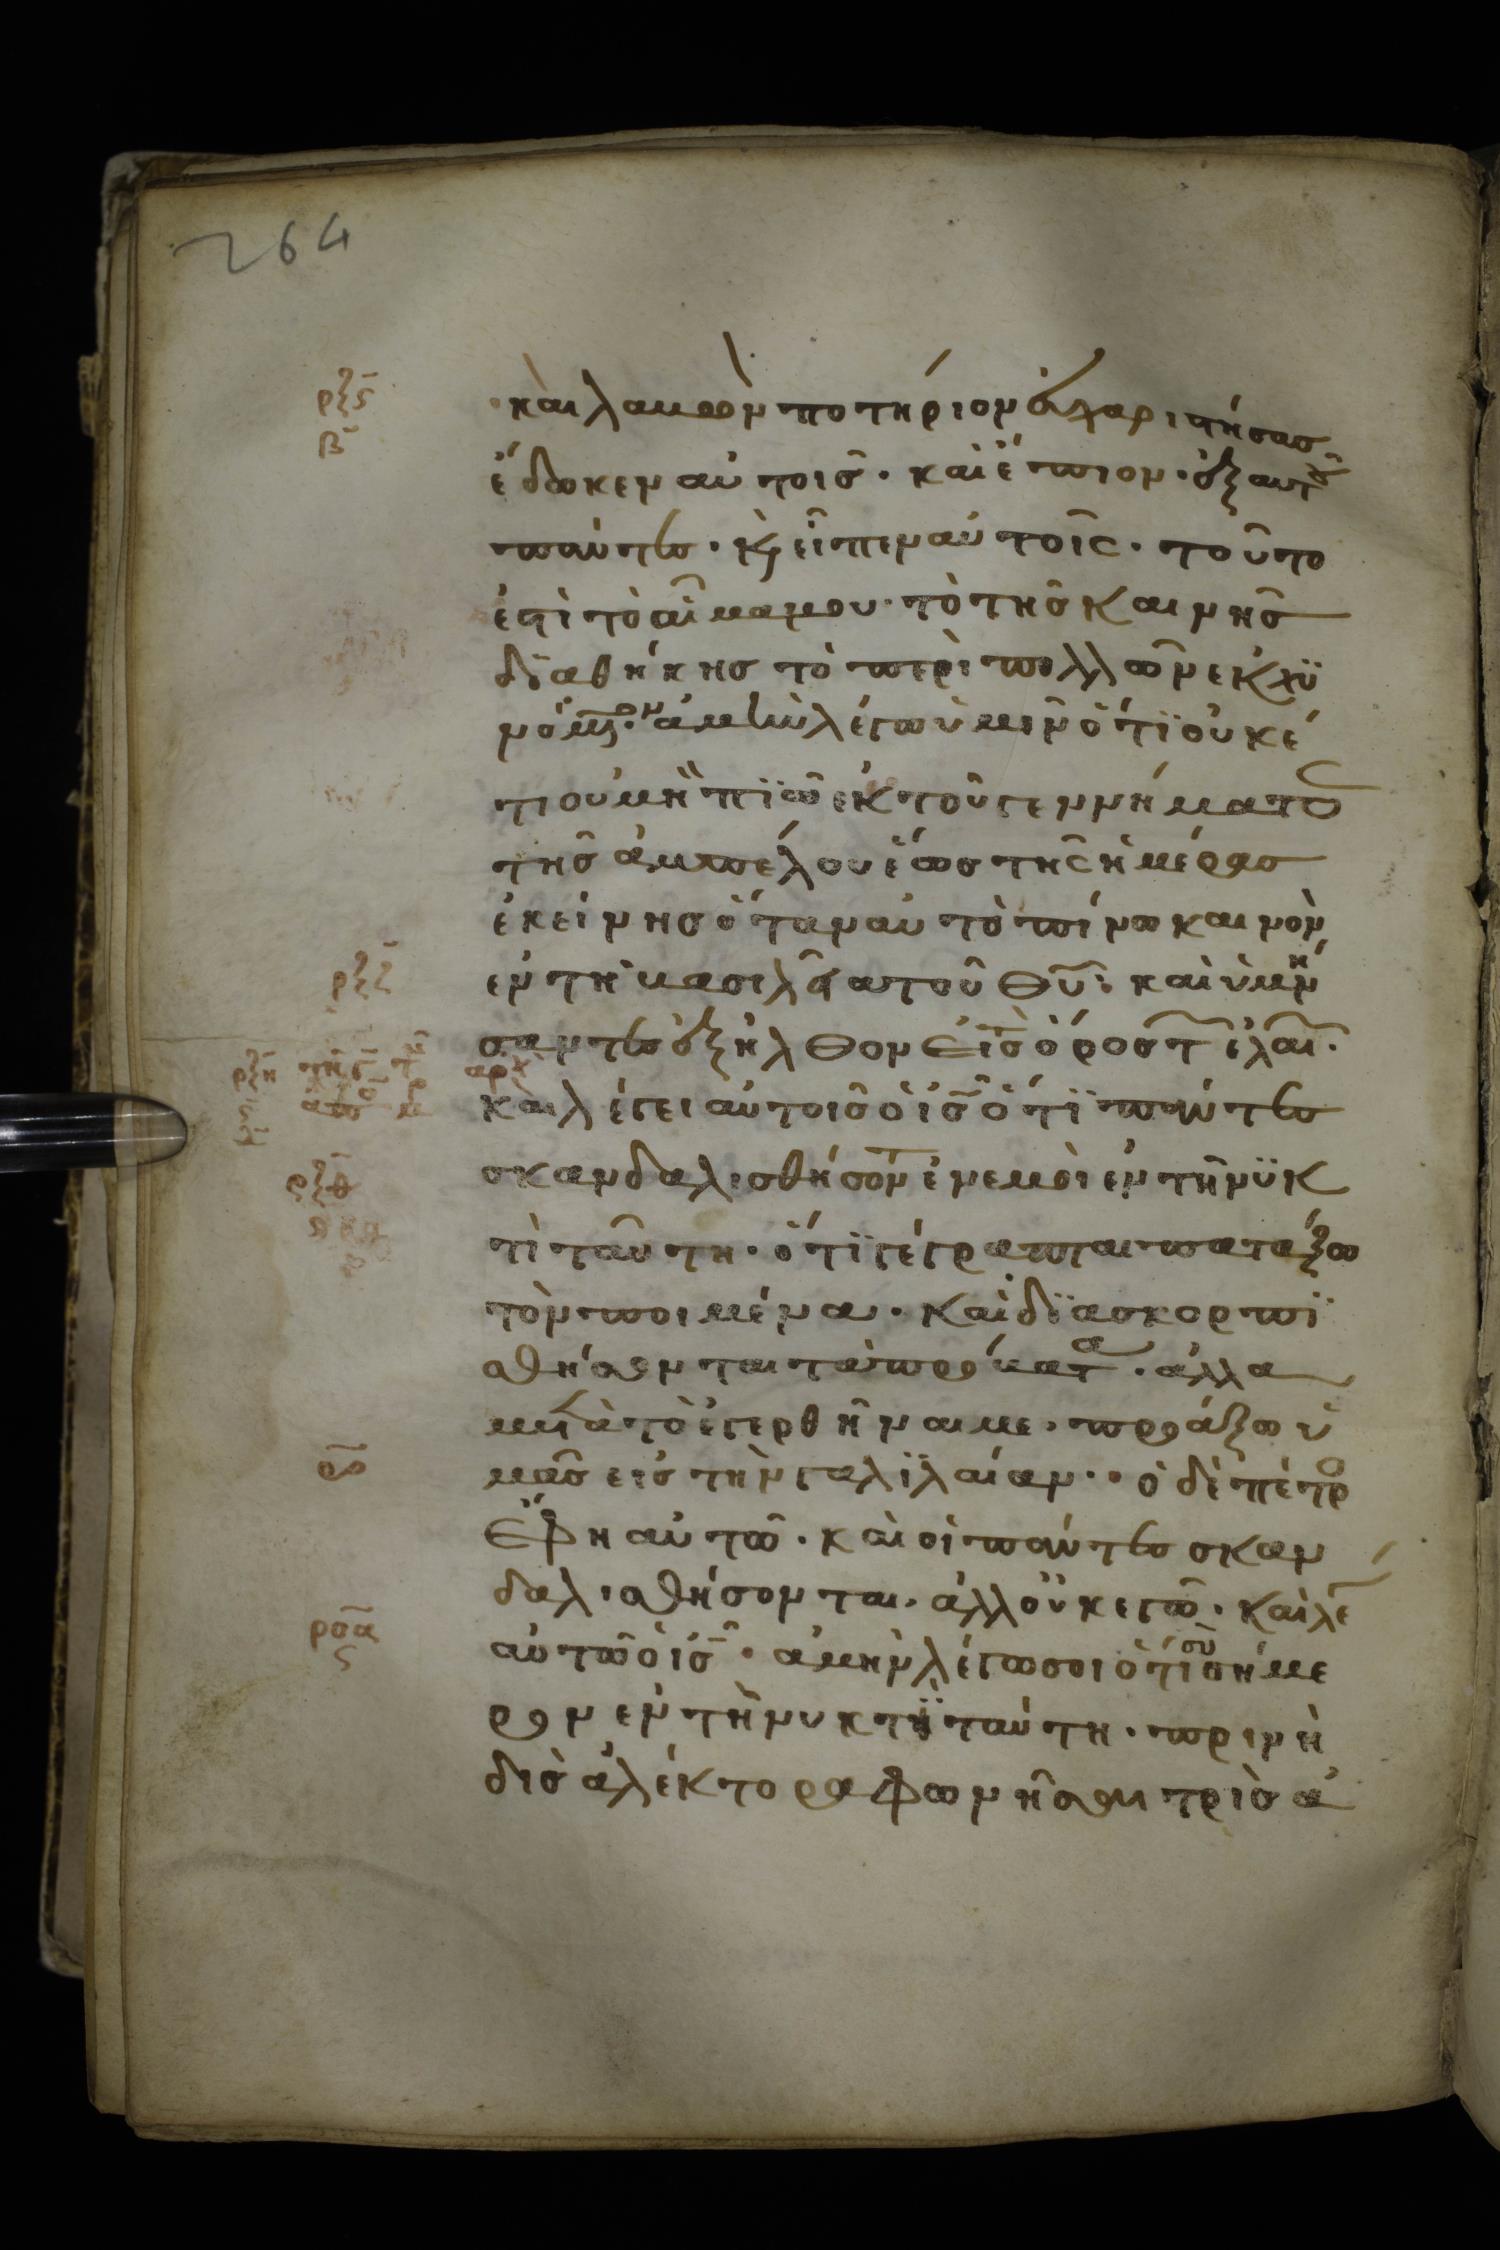 264
ρξς
β
· καὶ λαβὼν ποτήριον εὐχαριστήσας
ἔδωκεν αὐτοῖς · καὶ ἔπιον · ἐξ αυτοῦ
πάντες · κ(αὶ) εἶπεν αὐτοῖς · τοῦτο
ἐστὶ τὸ αἷμα μου · τὸ τῆς καινῆς
διαθήκης τὸ περὶ πολλῶν εκχϋ
νόμενον · ἀμὴν λέγω ὑμῖν ὅτϊ οὐκέ
τι οὐ μὴ πϊῶ ἐκ τοῦ γεννήματος
τῆς ἀμπέλου ἕως τῆς ἡμέρας
ἐκείνης ὅταν αὐτὸ πίνω καινὸν
ρξζ
ἐν τῇ βασιλεία τοῦ θῦ · καὶ ὑμνή
σαντες ἐξῆλθον εἰς τὸ ὄρος τ ἐλαι ·
ρξη
αρχ
καὶ λέγει αὐτοῖς ὁ ις ὅτϊ πάντες
ρξθ
σκανδαλισθήσοντ ἐν ἐμοὶ ἐν τῇ νϋκ
τὶ ταῦτη · ὅτϊ γέγραπται πατάξω
τὸν ποιμένα · καὶ δϊασκορπϊ
σθήσονται τὰ πρόβατα · ἀλλα
μετὰ τὸ ἐγερθῆναι με · προάξω ὑ
ρο
μᾶς εἰς τὴν γαλϊλαίαν · · ὁ δὲ πέτρο
ἔφη αὐτῶ · καὶ οἱ πάντες σκαν
δαλισθήσονται · ἀλλ οὐκ ἐγῶ · καὶ λέ
ροα
ς
αὐτῶ ὁ ις · ἀμὴν λέγω σοι ὅτι σὺ σήμε
ρον ἐν τῇ νυκτῒ ταύτη · πρινὴ
δὶς ἀλέκτορα φωνῆσαι τρὶς ἀ